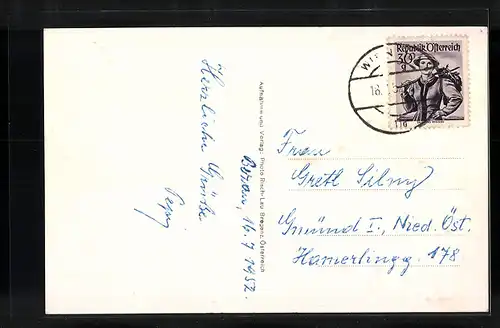 Herzliche Grüße
Pepy
Bezau, 16.7.1952.
Aufnahme und Verlag: Photo Risch-Lau Bregenz, Österreich
Republik Österreich
30
g
WIEN
Frau
Gretl Silny
Gmünd I., Nied. Öst.
Hamerlingg. 178